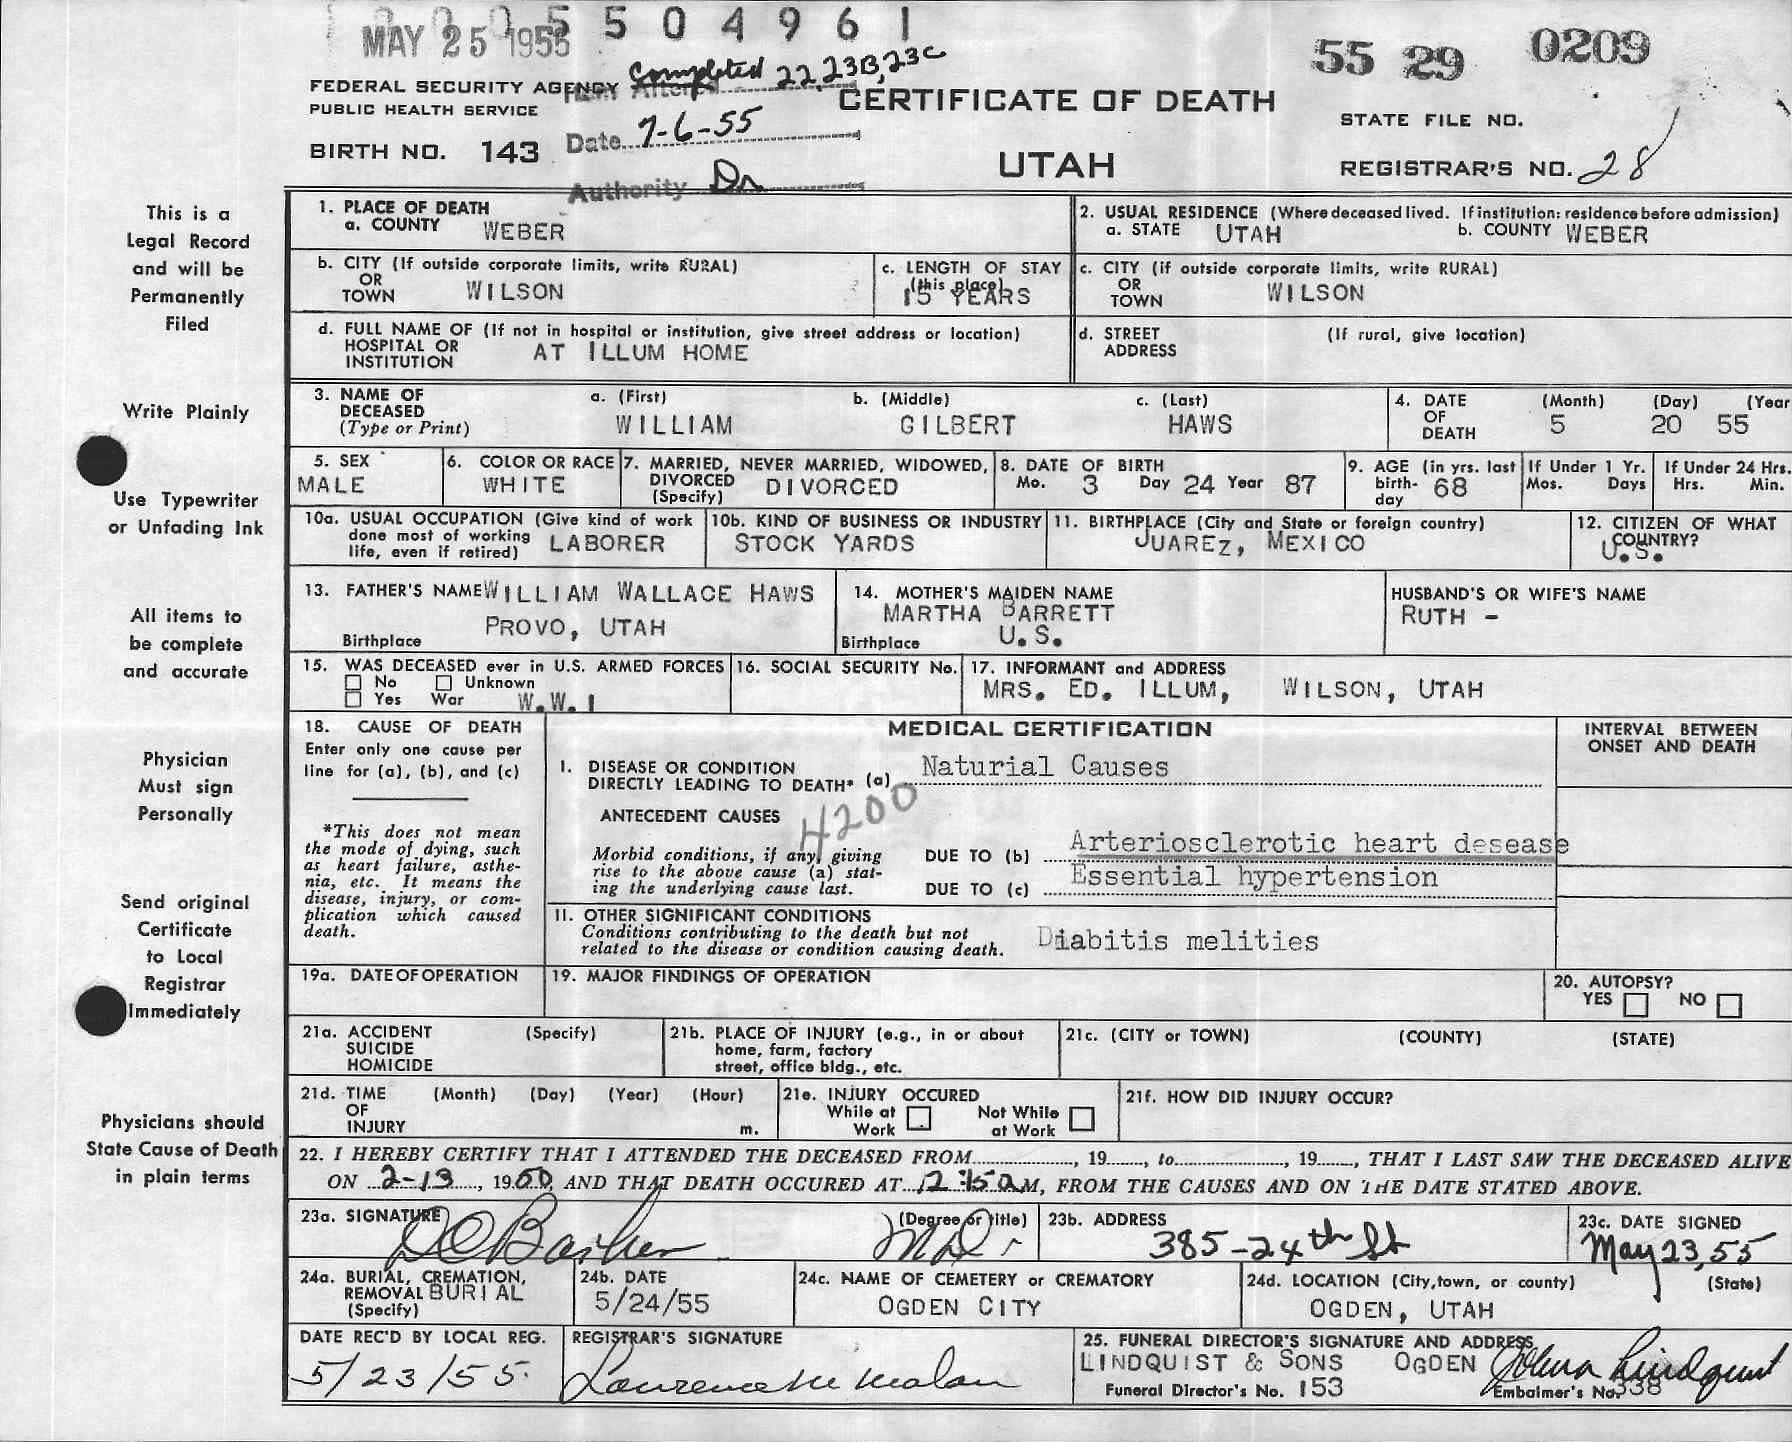 MAY 25 1955 5 5 0 4 9 6 1
55 29 0209
FEDERAL SECURITY AGENCY
PUBLIC HEALTH SERVICE
BIRTH NO. 143
Completed 22, 23B, 23C
Date 7-6-55
Authority Dr
CERTIFICATE OF DEATH
UTAH
STATE FILE NO.
REGISTRAR'S NO. 28
This is a
Legal Record
and will be
Permanently
Filed
Write Plainly
Use Typewriter
or Unfading Ink
All items to
be complete
and accurate
Physician
Must sign
Personally
Send original
Certificate
to Local
Registrar
Immediately
Physicians should
State Cause of Death
in plain terms
1. PLACE OF DEATH
a. COUNTY WEBER
2. USUAL RESIDENCE (Where deceased lived. If institution: residence before admission)
a. STATE UTAH b. COUNTY WEBER
b. CITY (If outside corporate limits, write RURAL)
OR
TOWN WILSON
c. LENGTH OF STAY
(this place)
15 YEARS
c. CITY (if outside corporate limits, write RURAL)
OR
TOWN WILSON
d. FULL NAME OF (If not in hospital or institution, give street address or location)
HOSPITAL OR
INSTITUTION AT ILLUM HOME
d. STREET (If rural, give location)
ADDRESS
3. NAME OF
DECEASED
(Type or Print)
a. (First) b. (Middle) c. (Last)
WILLIAM GILBERT HAWS
4. DATE
OF
DEATH
(Month) (Day) (Year
5 20 55
5. SEX
MALE
6. COLOR OR RACE
WHITE
7. MARRIED, NEVER MARRIED, WIDOWED,
DIVORCED
(Specify) DIVORCED
8. DATE OF BIRTH
Mo. 3 Day 24 Year 87
9. AGE (in yrs. last
birth-
day 68
If Under 1 Yr.
Mos. Days
If Under 24 Hrs.
Hrs. Min.
10a. USUAL OCCUPATION (Give kind of work
done most of working
life, even if retired) LABORER
10b. KIND OF BUSINESS OR INDUSTRY
STOCK YARDS
11. BIRTHPLACE (City and State or foreign country)
JUAREZ, MEXICO
12. CITIZEN OF WHAT
COUNTRY?
U.S.
13. FATHER'S NAME WILLIAM WALLACE HAWS
Birthplace PROVO, UTAH
14. MOTHER'S MAIDEN NAME
MARTHA BARRETT
Birthplace U.S.
HUSBAND'S OR WIFE'S NAME
RUTH -
15. WAS DECEASED ever in U.S. ARMED FORCES
No Unknown
Yes War W.W.I
16. SOCIAL SECURITY No.
17. INFORMANT and ADDRESS
MRS. ED. ILLUM, WILSON, UTAH
18. CAUSE OF DEATH
Enter only one cause per
line for (a), (b), and (c)
*This does not mean
the mode of dying, such
as heart failure, asthe-
nia, etc. It means the
disease, injury, or com-
plication which caused
death.
MEDICAL CERTIFICATION
INTERVAL BETWEEN
ONSET AND DEATH
I. DISEASE OR CONDITION
DIRECTLY LEADING TO DEATH* (a) Naturial Causes
ANTECEDENT CAUSES
4200
Morbid conditions, if any, giving
rise to the above cause (a) stat-
ing the underlying cause last.
DUE TO (b) Arteriosclerotic heart desease
DUE TO (c) Essential hypertension
II. OTHER SIGNIFICANT CONDITIONS
Conditions contributing to the death but not
related to the disease or condition causing death. Diabitis melities
19a. DATE OF OPERATION
19. MAJOR FINDINGS OF OPERATION
20. AUTOPSY?
YES NO
21a. ACCIDENT (Specify)
SUICIDE
HOMICIDE
21b. PLACE OF INJURY (e.g., in or about
home, farm, factory
street, office bldg., etc.
21c. (CITY or TOWN) (COUNTY) (STATE)
21d. TIME (Month) (Day) (Year) (Hour)
OF
INJURY m.
21e. INJURY OCCURED
While at Not While
Work at Work
21f. HOW DID INJURY OCCUR?
22. I HEREBY CERTIFY THAT I ATTENDED THE DECEASED FROM, 19, to, 19, THAT I LAST SAW THE DECEASED ALIVE
ON 2-13, 1950, AND THAT DEATH OCCURED AT 12:15 a M, FROM THE CAUSES AND ON THE DATE STATED ABOVE.
23a. SIGNATURE (Degree or title)
D C Barker M.D.
23b. ADDRESS
385-24th St
23c. DATE SIGNED
May 23, 55
24a. BURIAL, CREMATION,
REMOVAL BURIAL
(Specify)
24b. DATE
5/24/55
24c. NAME OF CEMETERY or CREMATORY
OGDEN CITY
24d. LOCATION (City, town, or county) (State)
OGDEN, UTAH
DATE REC'D BY LOCAL REG.
5/23/55.
REGISTRAR'S SIGNATURE
Laurence M Malan
25. FUNERAL DIRECTOR'S SIGNATURE AND ADDRESS
LINDQUIST & SONS OGDEN
Funeral Director's No. 153
Embalmer's No. 338